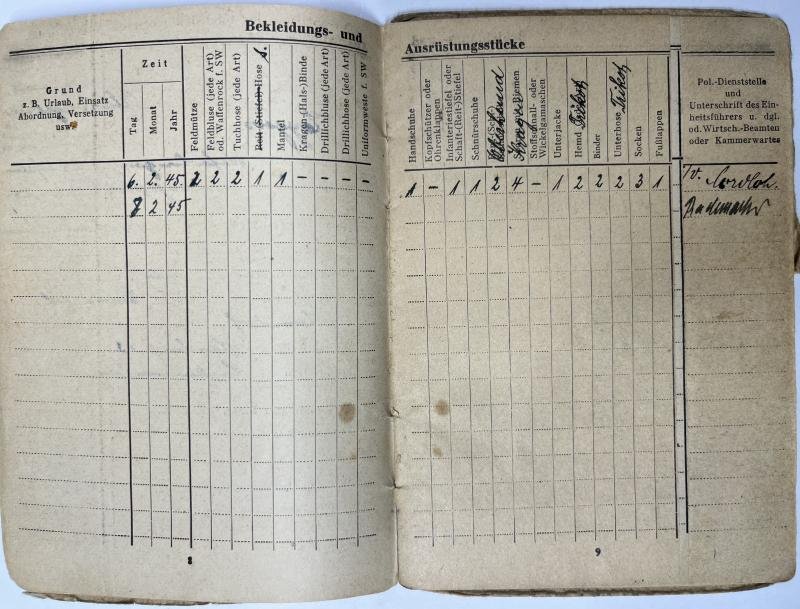 Bekleidungs- und
Grund
z. B. Urlaub, Einsatz
Abordnung, Versetzung
usw.
Zeit
Tag
Monat
Jahr
Feldmütze
Feldbluse (jede Art)
od. Waffenrock f. SW
Tuchhose (jede Art)
Reit-(Stiefel)-Hose
Mantel
Kragen-(Hals-)Binde
Drillichbluse (jede Art)
Drillichhose (jede Art)
Uniformweste f. SW
6. 2. 45. 2 2 2 1 1 – – – –
8 2 45
8
Ausrüstungsstücke
Handschuhe
Kopfschützer oder
Ohrenklappen
Infanteriestiefel oder
Schaft-(Reit-)Stiefel
Schnürschuhe
Kragen
Riemen
Stoffschnall- oder
Wickelgamaschen
Unterjacke
Hemd Trikot
Binder
Unterhose Trikot
Socken
Fußlappen
Pol.-Dienststelle
und
Unterschrift des Ein-
heitsführers u. dgl.
od. Wirtsch.-Beamten
oder Kammerwartes
1 – 1 1 2 4 – 1 2 2 2 3 1
9